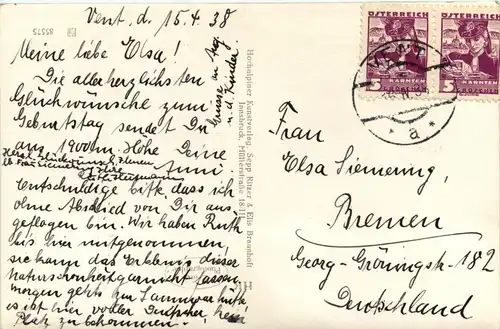 Vent. d. 15.4.38
Meine liebe Elsa!
Die allerherzlichsten
Glückwünsche zum
Geburtstag sendet Dir
aus 1900 m. Höhe Deine
Anni.
Grüsse an Aug.
u. d. Kinder.
Herzl. Glückwunsch,
Entschuldige bitte, dass ich
ohne Abschied von Dir aus-
geflogen bin. Wir haben Ruth
bis hier mitgenommen,
sie kann das Erlebnis dieser
Naturschönheit garnicht fassen,
morgen gehts zur Sammoarhütte
es ist hier voller Deutscher, kein
Platz zu bekommen.
85575
Hochalpiner Kunstverlag, Sepp Ritzer & Elis Braunhoff
Innsbruck, Müllerstraße 18/II
ÖSTERREICH
5
KÄRNTEN
GROSCHEN
ÖSTERREICH
5
KÄRNTEN
GROSCHEN
* a *
Frau
Elsa Siemering,
Bremen
Georg-Gröningstr. 182
Deutschland